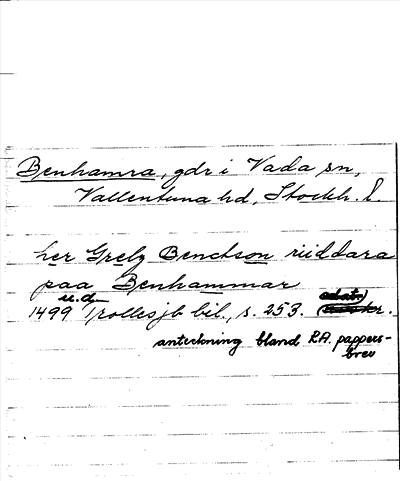 Benhamra, gdr i Vada sn,
Vallentuna hd, Stockh. l.
her Grelz Benctson riiddara
paa Benhammar
u.d.
1499 Trollesjb bil., s. 253. (odat.)
anteckning bland RA. pappers-
brev